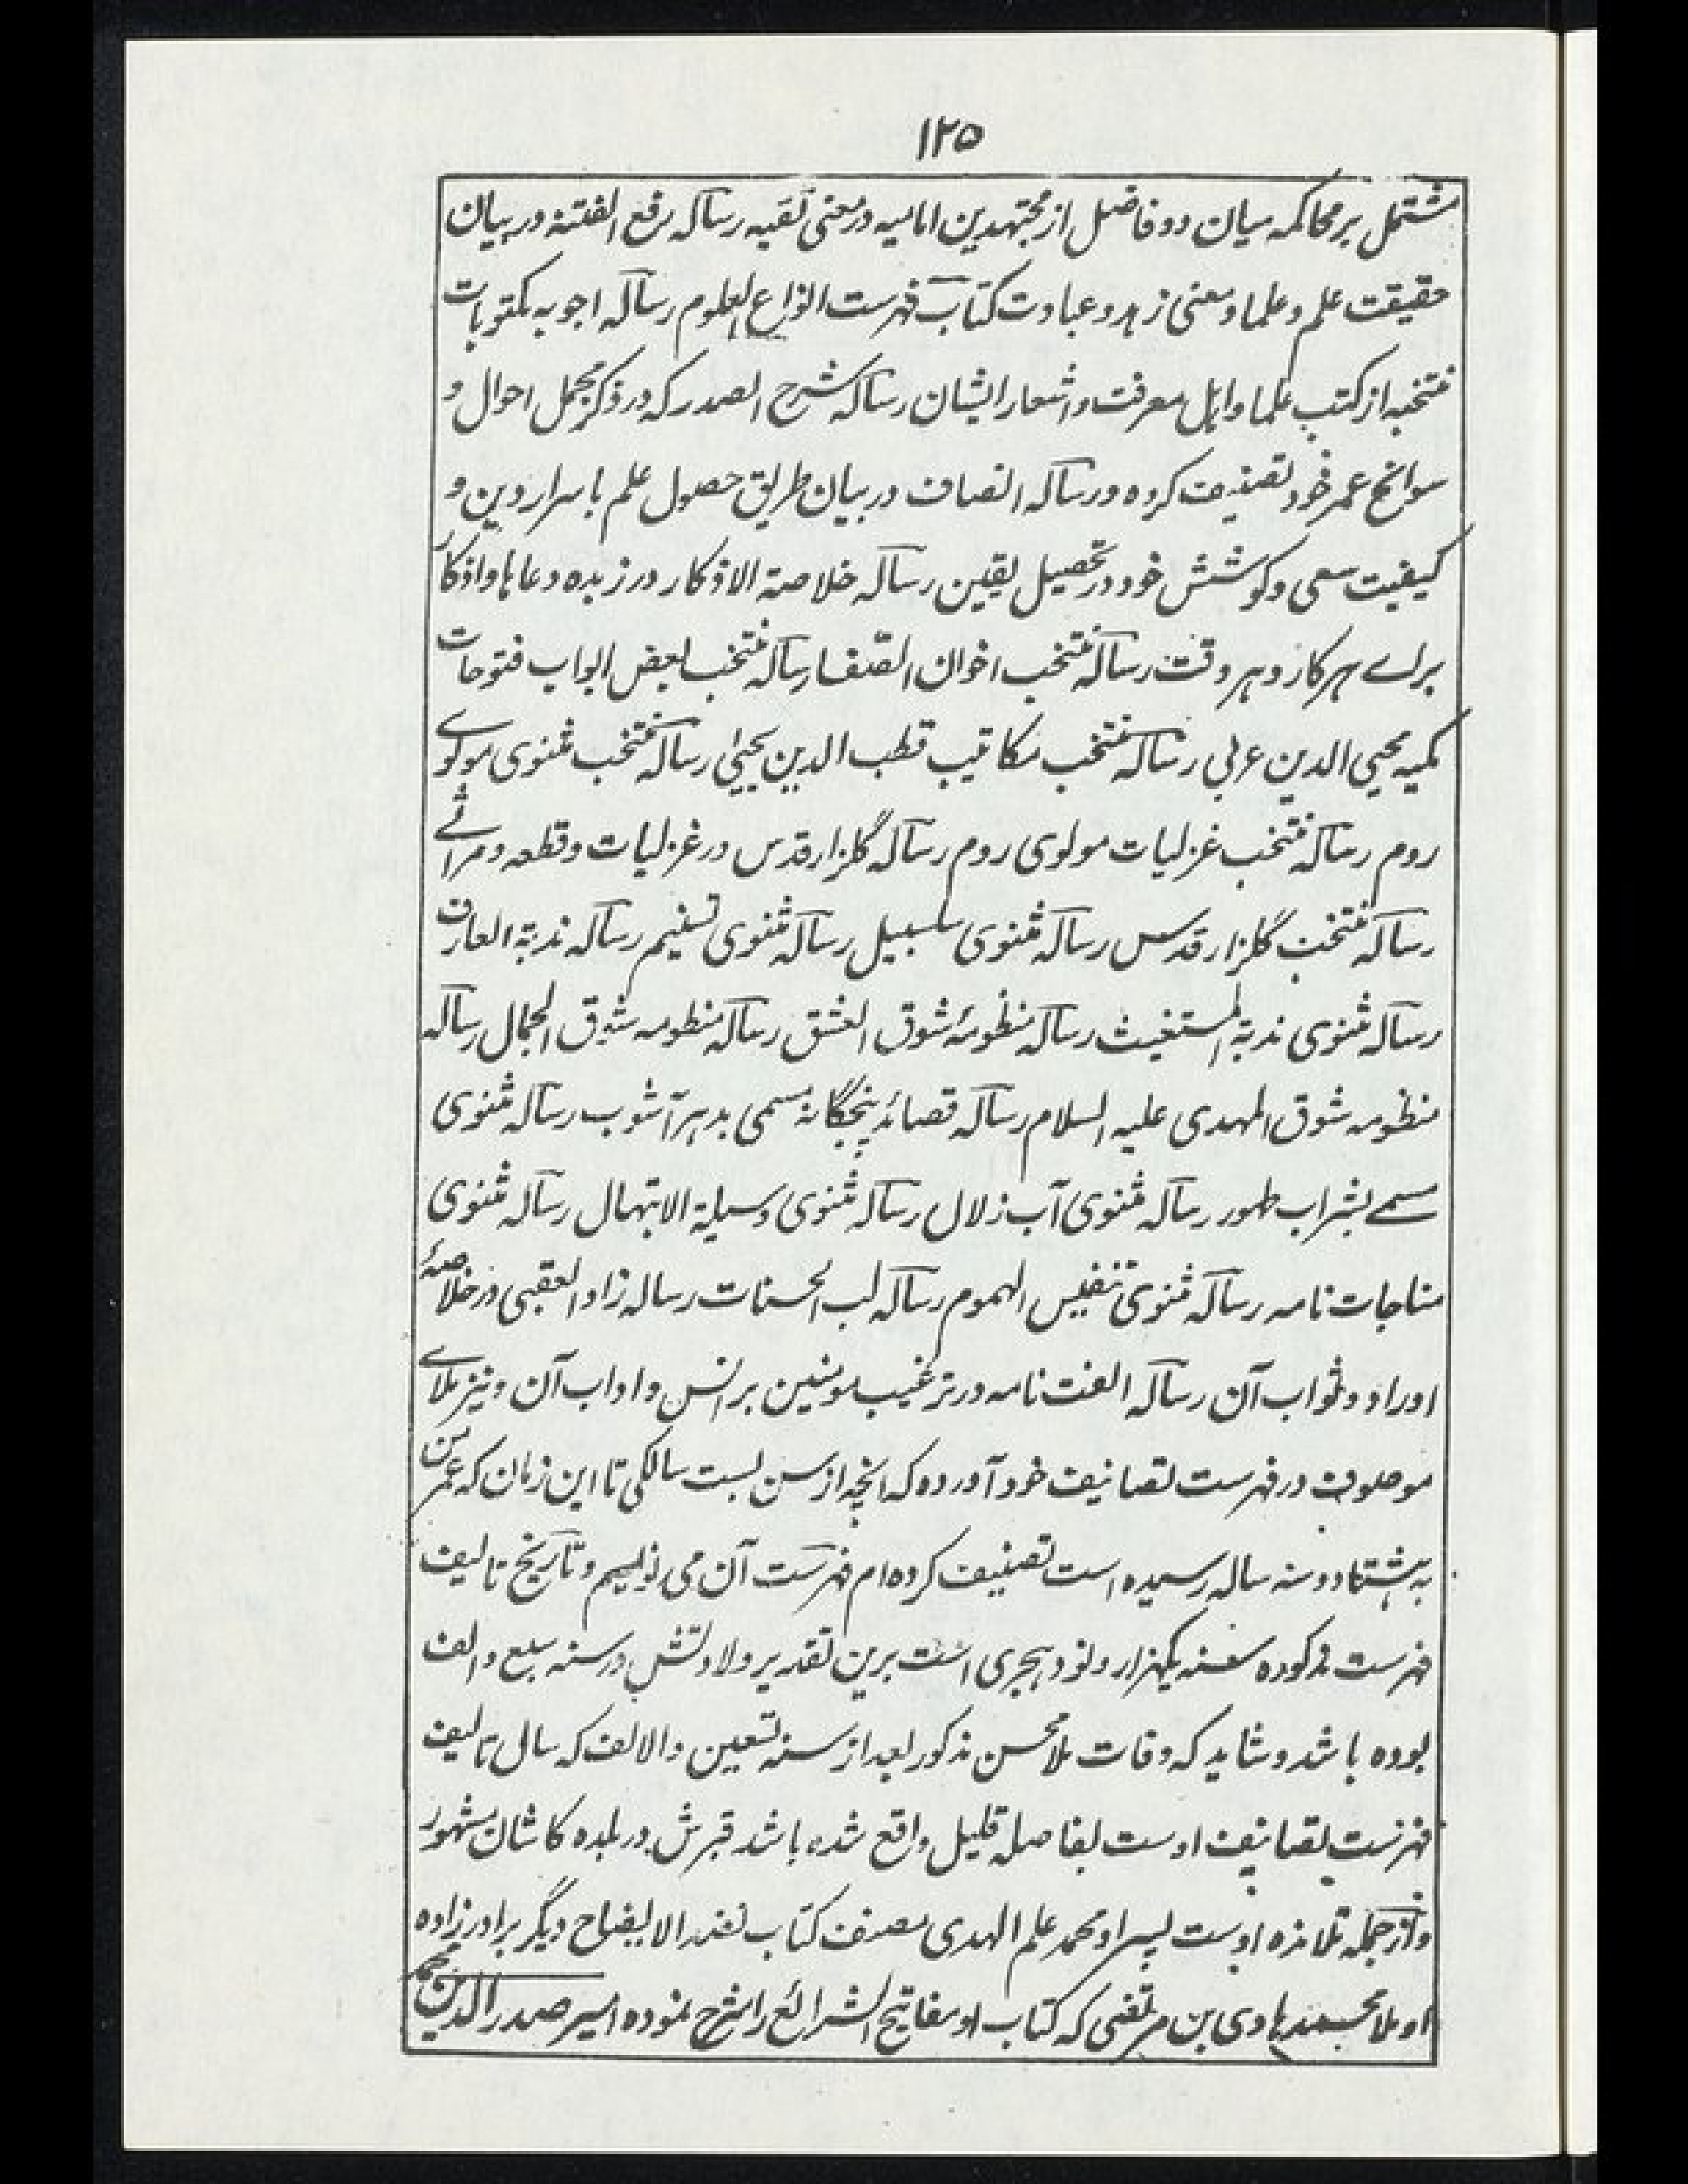 ۱۲۵
مشتمل بر محاکمه میان دو فاضل از مجتهدین امامیه در معنی تقیه رساله رفع الفتنه در بیان
حقیقت علم و علما و معنی زهد و عبادت کتاب فهرست انواع العلوم رساله اجوبه مکتوبات
منتخبه از کتب علما و اهل معرفت و اشعار ایشان رساله شرح الصدر که در ذکر مجمل احوال و
سوانح عمر خود تصنیف کرده و رساله انصاف در بیان طریق حصول علم باسرار دین و
کیفیت سعی و کوشش خود در تحصیل یقین رساله خلاصة الاذکار در زبده دعاها و اذکار
برای هر کار و هر وقت رساله منتخب اخوان الصفا رساله منتخب بعض ابواب فتوحات
مکیه محیی الدین عربی رساله منتخب مکاتیب قطب الدین یحیی رساله منتخب مثنوی مولوی
روم رساله منتخب غزلیات مولوی روم رساله گلزار قدس در غزلیات و قطعه و مراثی
رساله منتخب گلزار قدس رساله مثنوی سلسبیل رساله مثنوی تسنیم رساله ندبة العارف
رساله مثنوی ندبة المستغیث رساله منظومهٔ شوق العشق رساله منظومه شوق الجمال رساله
منظومه شوق المهدی علیه السلام رساله قصائد پنجگانه مسمی بدهرآشوب رساله مثنوی
مسمے بشراب طهور رساله مثنوی آب زلال رساله مثنوی وسیلة الابتهال رساله مثنوی
مناجات نامه رساله مثنوی تنفیس الهموم رساله لب الحسنات رساله زاد العقبی در خلاصهٔ
اوراد و ثواب آن رساله الفت نامه در ترغیب مومنین بر انس و اداب آن و نیز ملای
موصوف در فهرست تصانیف خود آورده که انچه از سن بست سالگی تا این زمان که عمر من
به هشتاد و سه ساله رسیده است تصنیف کرده ام فهرست آن می نویسیم و تاریخ تالیف
فهرست مذکوره سنه یکهزار و نود هجری است برین تقدیر ولادتش در سنه سبع و الف
بوده باشد و شاید که وفات ملا محسن مذکور بعد از سنه تسعین و الالف که سال تالیف
فهرست تصانیف اوست بفاصله قلیل واقع شده باشد قبرش در بلده کاشان مشهور
و از جمله تلامذه اوست پسر او محمد علم الهدی مصنف کتاب نضد الایضاح دیگر برادر زاده
او ملا محمد هادی بن مرتضی که کتاب او مفاتیح الشرائع را شرح نموده امیر صدر الدین محمد